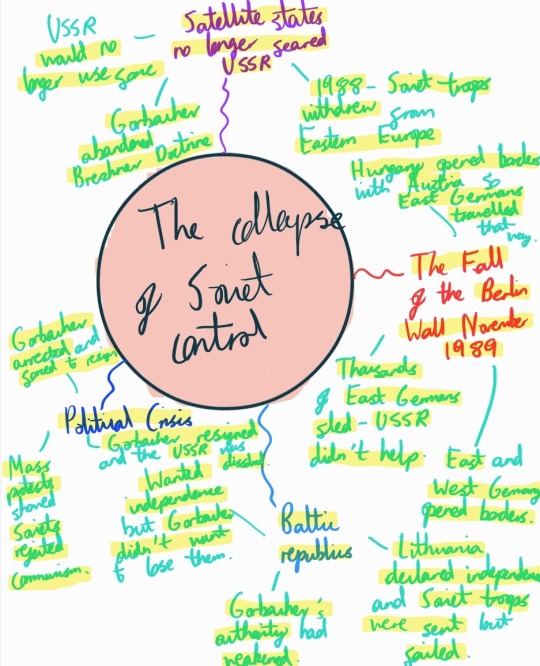 The collapse
of Soviet
control
Satellite states
no longer feared
USSR
USSR
would no
longer use force
Gorbachev
abandoned
Brezhnev Doctrine
1988 - Soviet troops
withdrew from
Eastern Europe
The Fall
of the Berlin
Wall November
1989
Hungary opened borders
with Austria so
East Germans
travelled
that way.
Thousands
of East Germans
fled - USSR
didn't help.
East and
West Germany
opened borders.
Baltic
republics
Lithuania
declared independence
and Soviet troops
were sent but
failed.
Gorbachev's
authority had
weakened.
Wanted
independence
but Gorbachev
didn't want
to lose them.
Political Crisis
Gorbachev resigned
and the USSR was
dissolved.
Mass
protests
showed
Soviets
rejected
communism.
Gorbachev
arrested and
forced to resign